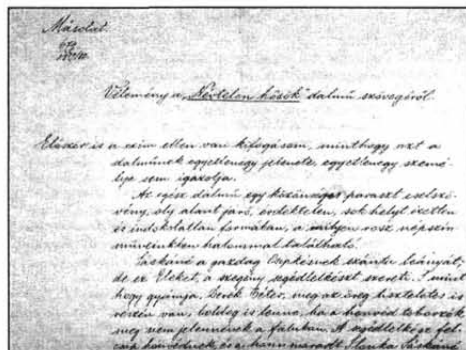 Másolat.
Vélemény a „Névtelen hősök” dalmű szövegéről.
Először is a czim ellen van kifogásom, minthogy azt a
dalműnek egyetlenegy jelenete, egyetlenegy szemé-
lye sem igazolja.
Az egész dalmű egy közönséges paraszt cselszö-
vény, oly alant járó, érdektelen, sok helyt izetlen
és indokolatlan formában, a milyen rosz népszin
műveinkben halommal található.
a gazdag leányát;
de ez Eleket, a szegény segédlelkészt szereti. S mint
hogy gyámja, Péter, meg az öreg tiszteletes is
részén van, boldog is lenne, ha a honvéd toborzók
meg nem jelennének a faluban. A segédlelkész fel
csap honvédnek, és a